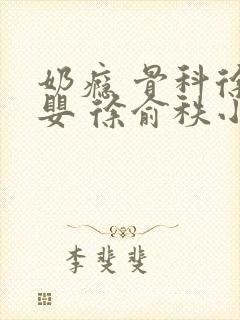 奶瘾 骨科徐
婴 徐俞秩小
李斐斐